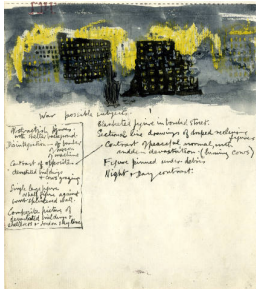 War possible subjects.
Abstracted figures
with shelter background.
Disintegration – of border
of
of machine
Contrast of opposites –
demolished buildings
& cows grazing
Single large figure
against
bomb splintered shell.
Composite picture of
devastated buildings
shelterers & London skyline
Blanketed figure in bombed street.
Sectional line drawings of draped reclining
figures
Contrast of peaceful normal with
sudden devastation (burning cows)
Figure pinned under debris
Night & Day contrast.